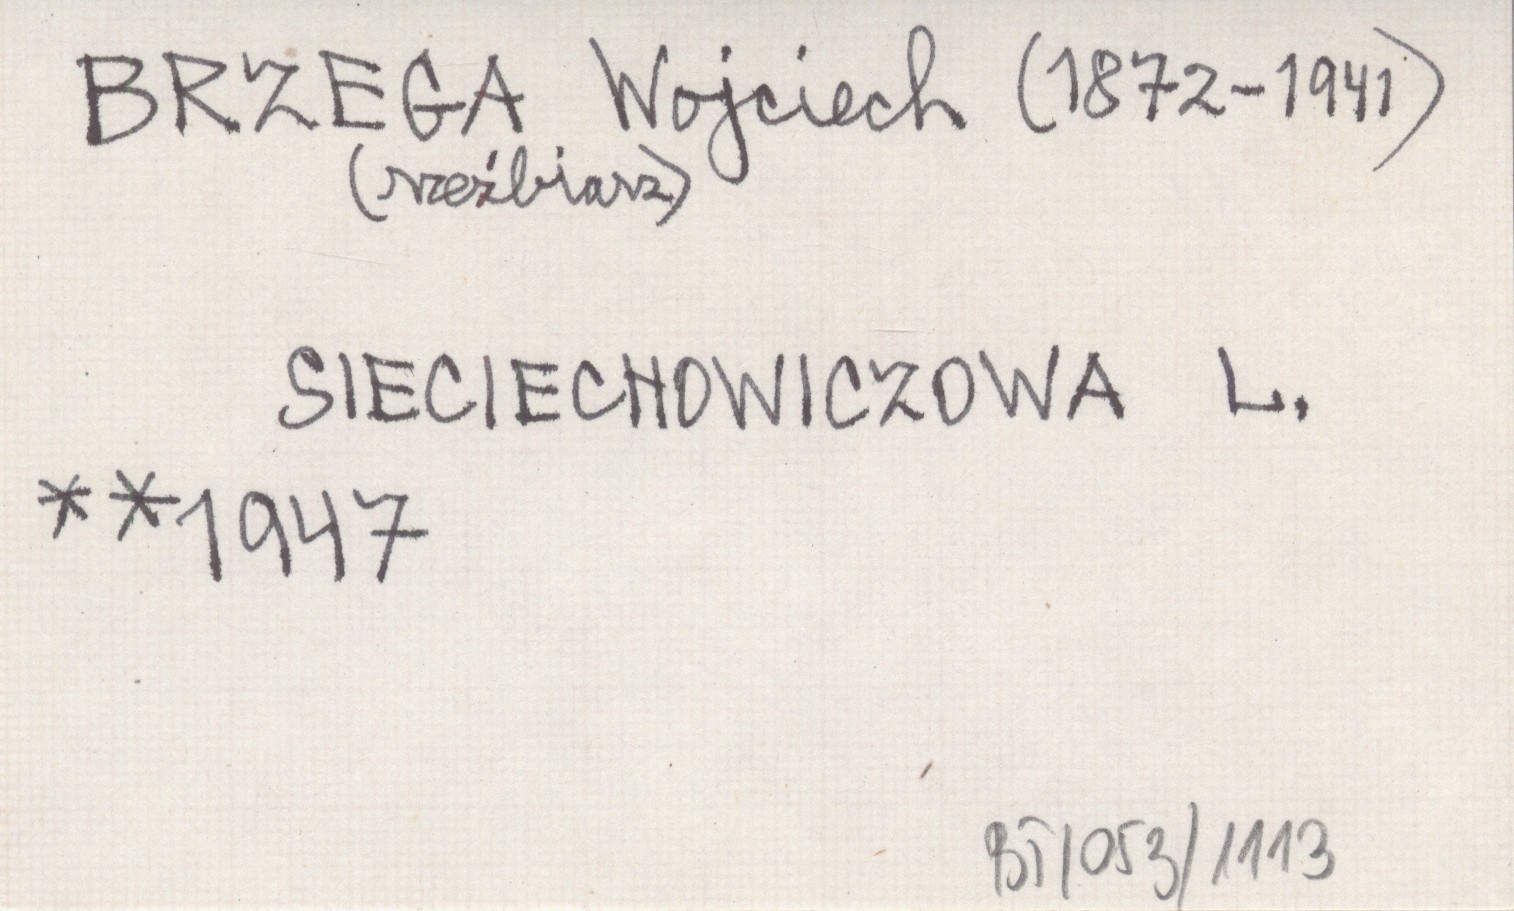 BRZEGA Wojciech (1872-1941)
(rzeźbiarz)
SIECIECHOWICZOWA L.
**1947
BT/053/1113